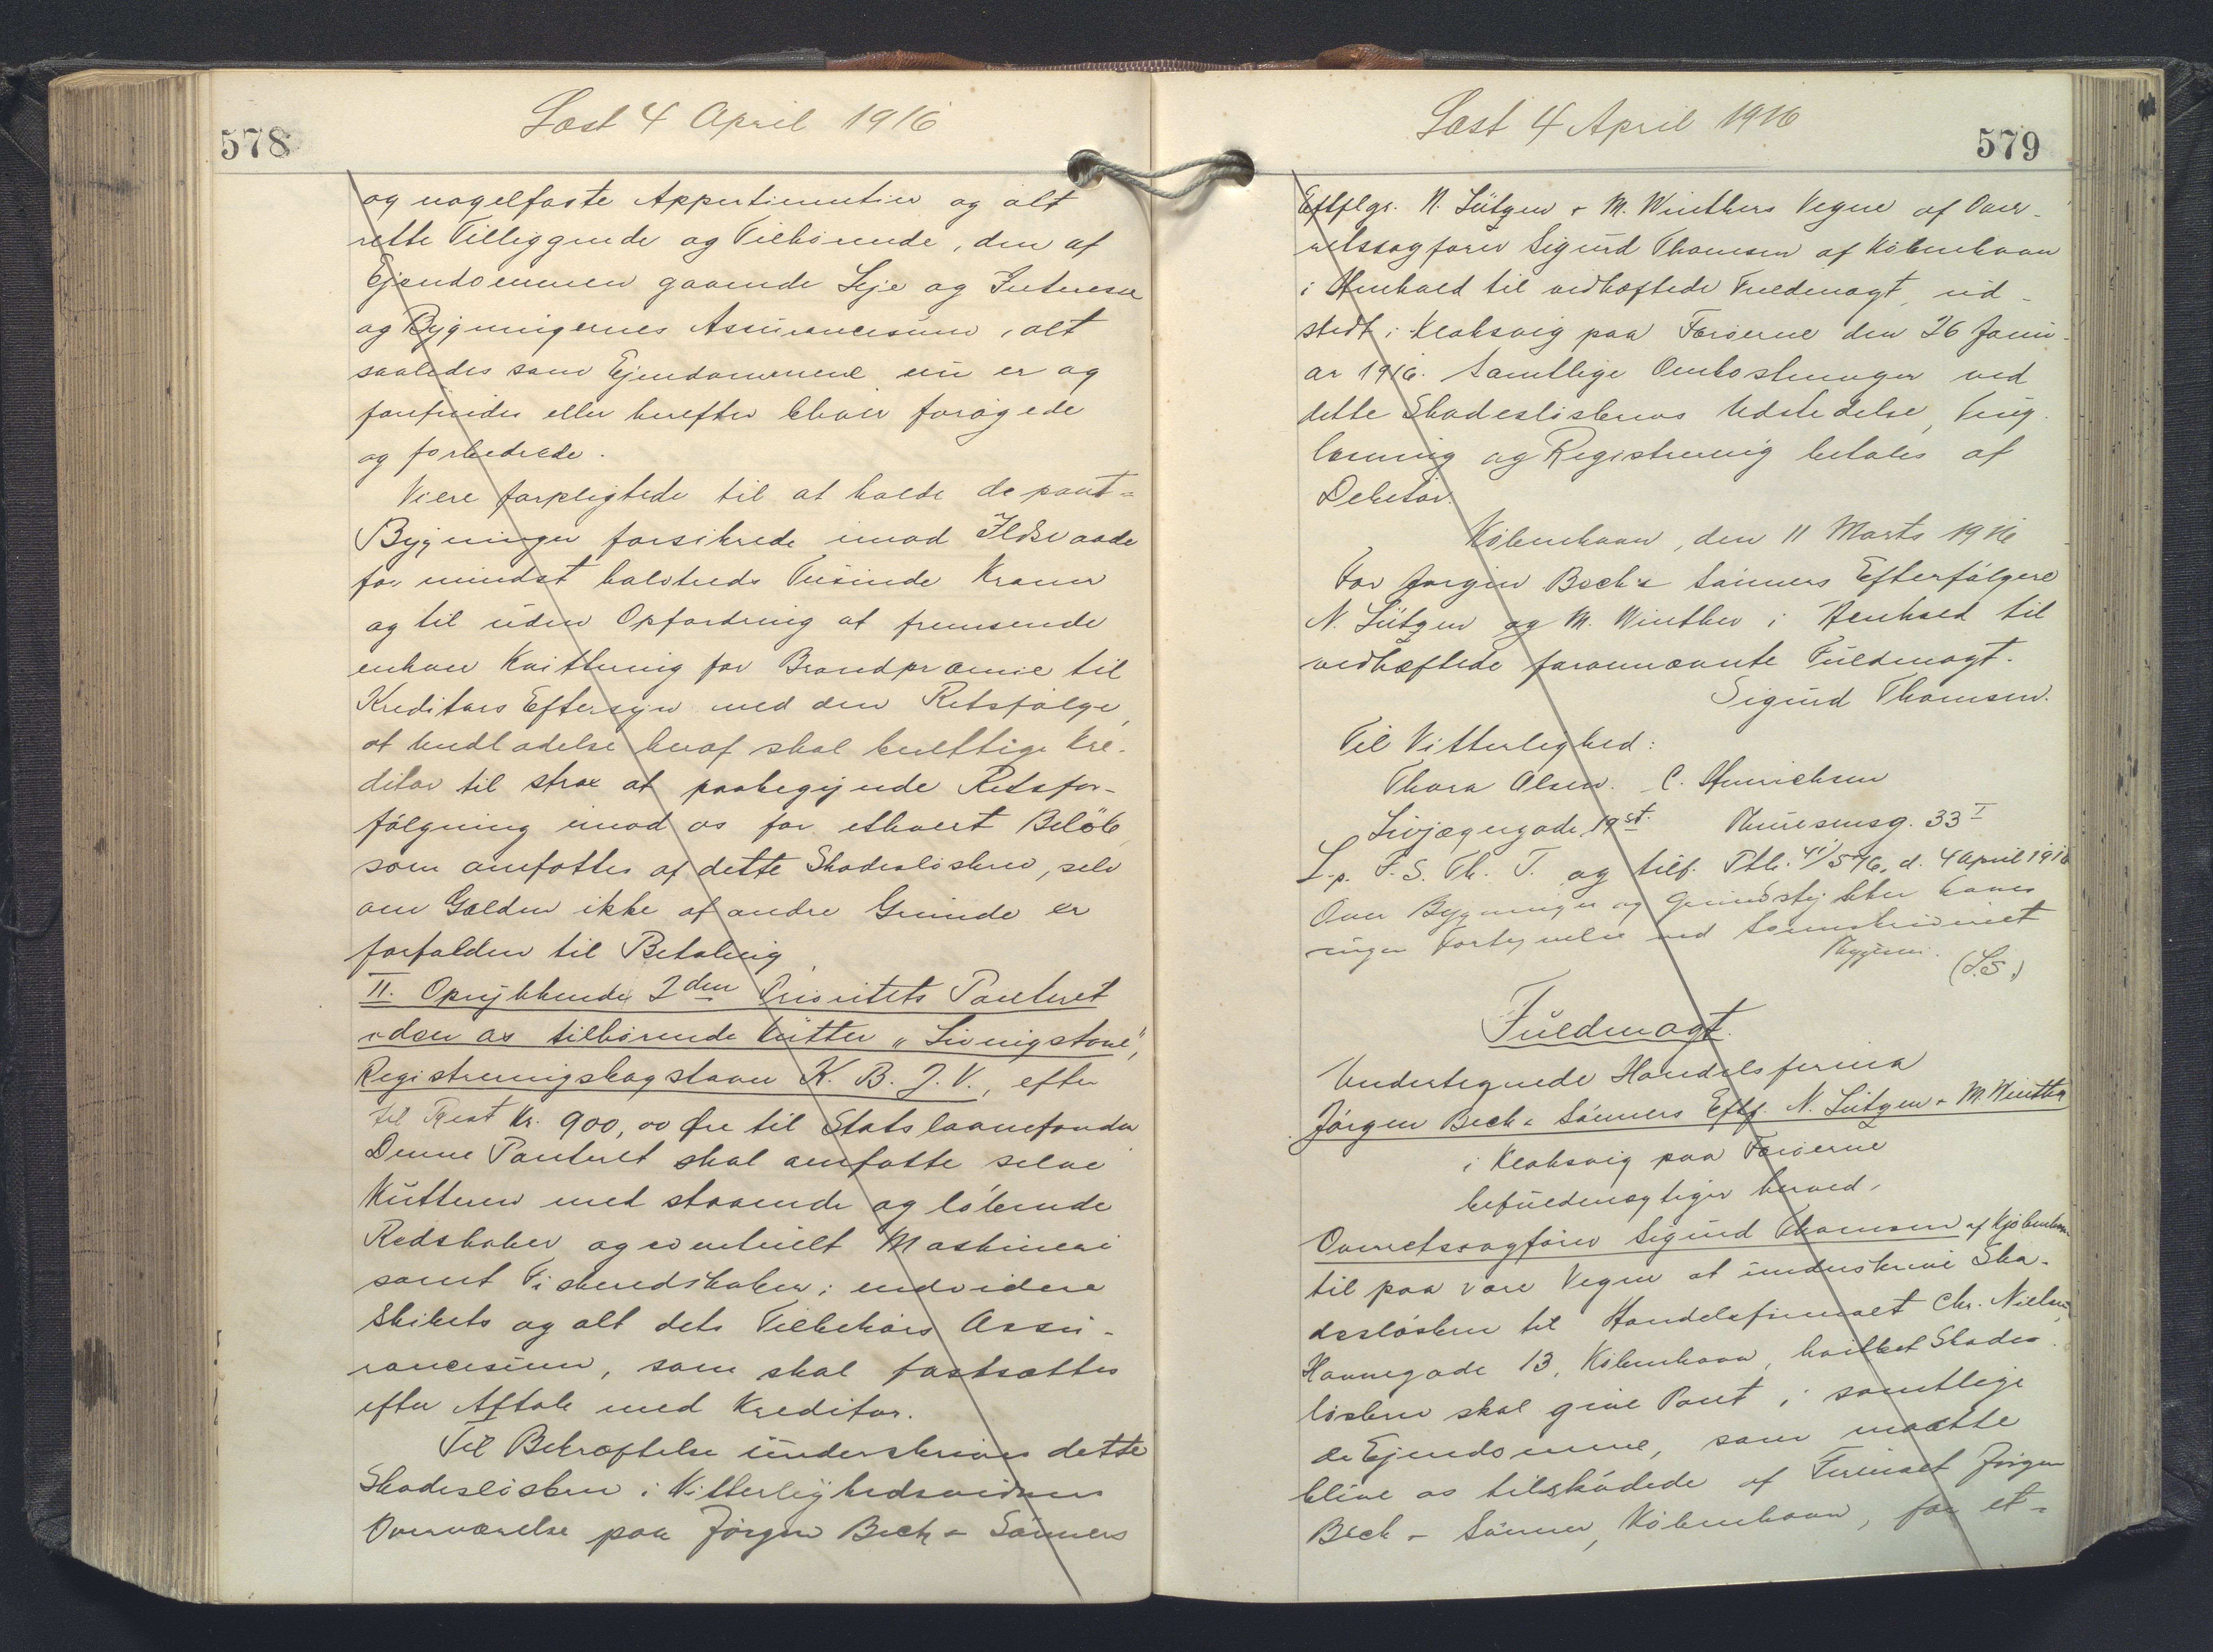 578
Læst 4 April 1916
og nagelfaste Appertinentier og alt
rette Tilliggende og Tilhørende, den af
Ejendommen gaaende Leje og Interesse
og Bygningernes Assurancesum, alt
saaledes som Ejendommene nu er og
forefindes eller herefter bliver forøgede
og forbedrede.
Vi ere forpligtede til at holde de pant-
Bygninger forsikrede imod Ildsvaade
for mindst halvtreds Tusinde Kroner
og til uden Opfordring at fremsende
enhver Kvittering for Brandpræmie til
Kreditors Eftersyn med den Retsfølge,
at Undladelse heraf skal berettige Kre-
ditor til strax at paabegynde Retsfor-
følgning imod os for ethvert Beløb,
som omfattes af dette Skadesløsbrev, selv
om Gælden ikke af andre Grunde er
forfalden til Betaling.
II. Oprykkende 2den Prioritets Panteret
i den os tilhørende Kutter „Livingstone",
Registreringsbogstaver K. B. J. V., efter
til Rest Kr. 900,00 Øre til Statslaanefonden
Denne Panteret skal omfatte selve
Kutteren med staaende og løbende
Redskaber og eventuelt Maskineri
samt Fiskeredskaber; endvidere
Skibets og alt dets Tilbehørs Assu-
rancesum, som skal fastsættes
efter Aftale med Kreditor.
Til Bekræftelse underskrives dette
Skadesløsbrev i Vitterlighedsvidners
Overværelse paa Jørgen Bech & Sønners
Læst 4 April 1916
579
Eftflgr. N. Lützen & M. Winthers Vegne af Over-
retssagfører Sigurd Thomsen af København
i Henhold til vedhæftede Fuldmagt, ud-
stedt i Klaksvig paa Færøerne den 26 Janu-
ar 1916. Samtlige Omkostninger ved
dette Skadesløsbrevs Udstedelse, Ting-
læsning og Registrering betales af
Debitor.
København, den 11 Marts 1916
For Jørgen Bech & Sønners Efterfølgere
N. Lützen og M. Winther i Henhold til
vedhæftede forannævnte Fuldmagt.
Sigurd Thomsen.
Til Vitterlighed:
Thora Olsen. C. Henrichsen
Livjægergade 19 st. Thuresensg. 33 I
L. p. F. S. Th. T. og tilf. Ptb. d. 4 April 1916
Over Bygninger og Grundstykker haves
ingen Fortegnelse ved Sorenskriveriet
(L.S.)
Fuldmagt.
Undertegnede Handelsfirma
Jørgen Bech & Sønners Eftf. N. Lützen & M. Winther
i Klaksvig paa Færøerne
befuldmægtiger herved,
Overretssagfører Sigurd Thomsen af Kjøbenhavn
til paa vore Vegne at underskrive Ska-
desløsbrev til Handelsfirmaet Chr. Nielsen,
Havnegade 13, København, hvilket Skades-
løsbrev skal give Pant i samtlige
de Ejendomme, som maatte
blive os tilskødede af Firmaet Jørgen
Bech & Sønner, København, for et-